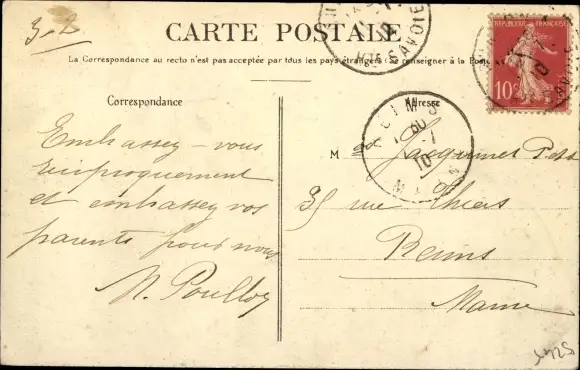 3-1
CARTE POSTALE
HTE SAVOIE
REPUBLIQUE FRANÇAISE
10c
La Correspondance au recto n'est pas acceptée par tous les pays étrangers (Se renseigner à la Poste)
Correspondance
Adresse
REIMS
10
MARNE
Embrassez-vous
réciproquement
et embrassez vos
parents pour nous
N.
M Jacquinet
35 rue Thiers
Reims
Marne